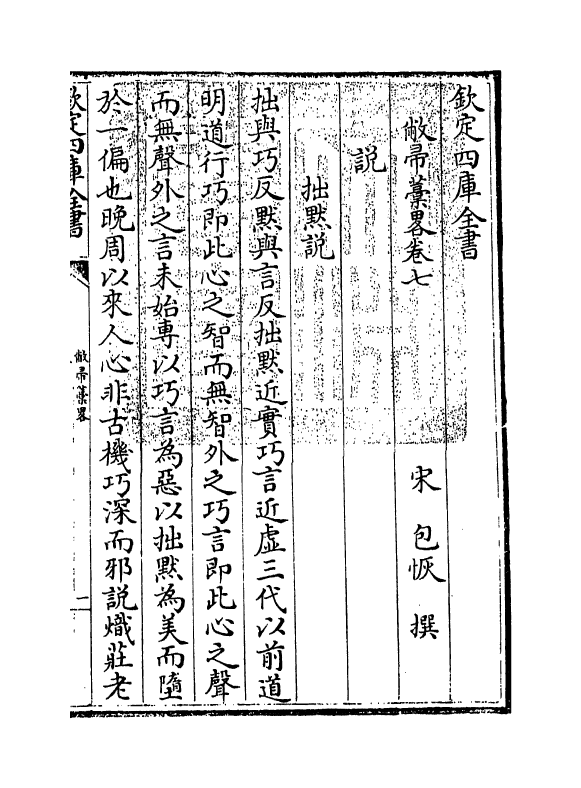 欽定四庫全書
敝帚藁畧卷七
宋 包恢 撰
説
拙黙説
拙與巧反黙與言反拙黙近實巧言近虛三代以前道
明道行巧即此心之智而無智外之巧言即此心之聲
而無聲外之言未始専以巧言為惡以拙黙為美而墮
於一偏也晚周以來人心非古機巧深而邪説熾莊老
欽定四庫全書
敝帚藁畧
一